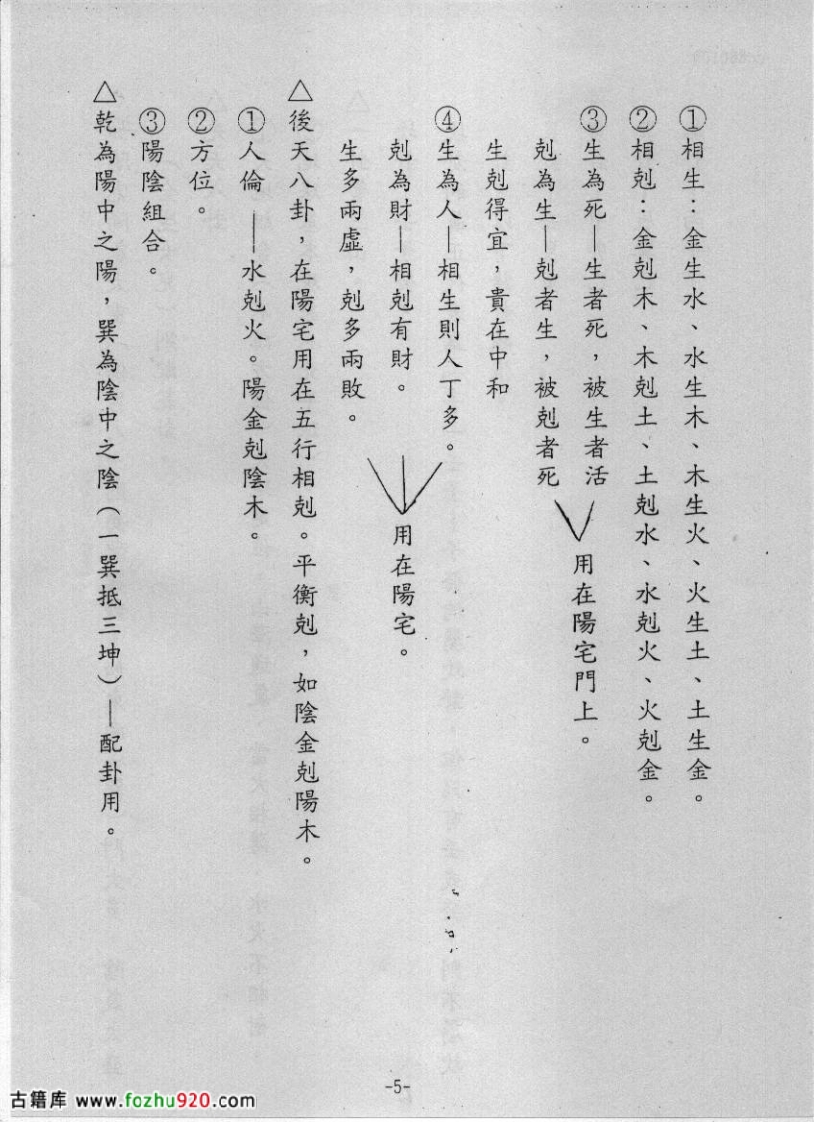 ①相生：金生水、水生木、木生火、火生土、土生金。
②相剋：金剋木、木剋土、土剋水、水剋火、火剋金。
③生為死—生者死，被生者活
剋為生—剋者生，被剋者死
用在陽宅門上。
生剋得宜，貴在中和
④生為人—相生則人丁多。
剋為財—相剋有財。
生多兩虛，剋多兩敗。
用在陽宅。
△後天八卦，在陽宅用在五行相剋。平衡剋，如陰金剋陽木。
①人倫——水剋火。陽金剋陰木。
②方位。
③陽陰組合。
△乾為陽中之陽，巽為陰中之陰（一巽抵三坤）—配卦用。
-5-
古籍库 www.fozhu920.com